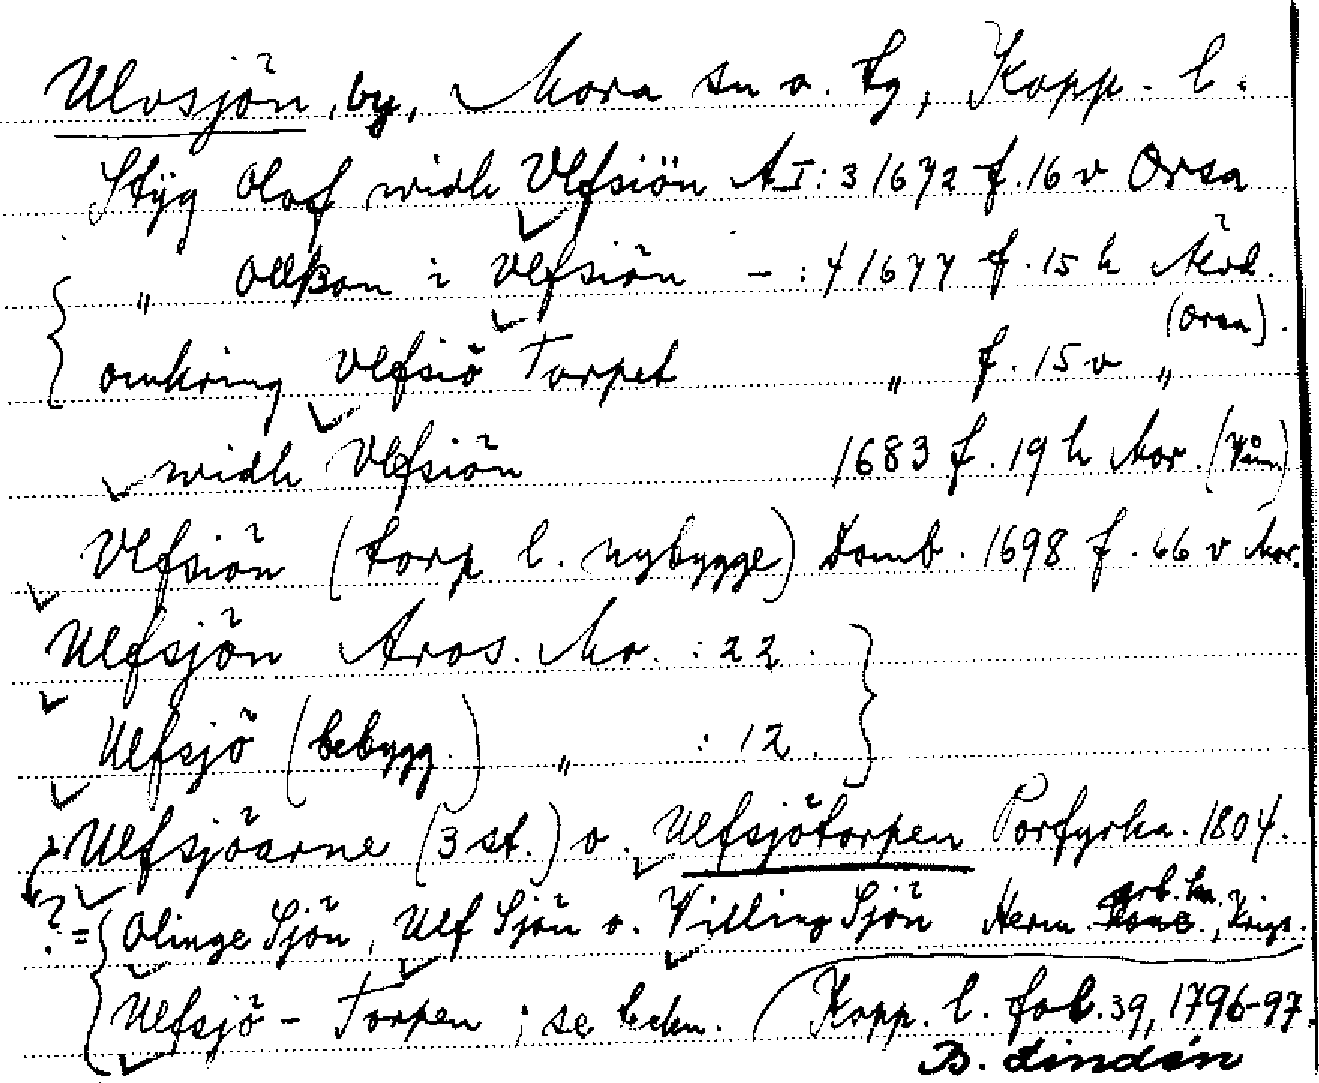 Ulvsjön, by, Mora sn o. tg, Kopp. l.
Styg Olof widh Vlfsiön AI:3 1672 f.16 v Orsa
" Ollßon i Vlfsiön - :4 1677 f.15 h Mord.
(Orsa).
{ omkring Vlfsiö Torpet " f.15 v "
widh Vlfsiön 1683 f.19 h Mor. (Våm.)
Vlfsiön (torp l. nybygge) Domb. 1698 f.66 v Mor.
Ulfsjön Aros. Mo. :22. }
Ulfsjö (bebygg.) " :12.
Ulfsjöarne (3 st.) o. Ulfsjötorpen Porfyrka. 1804.
?= { Olinge Sjön, Ulf Sjön o. Villing Sjön Herm. arb. ka., Krigs.
Ulfsjö - Torpen ; se beckn. Kopp. l. fol.39, 1796-97.
B. Lindén